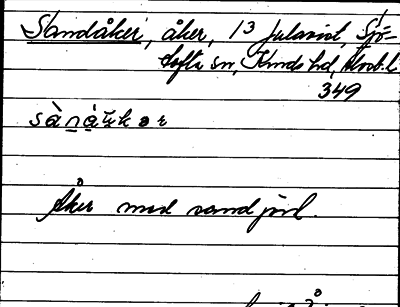 Sandåker, åker, 13 Julared, Sjö-
tofta sn, Kinds hd, Älvsb. l.
349
sàn̠å̀kər
Åker med sandjord.